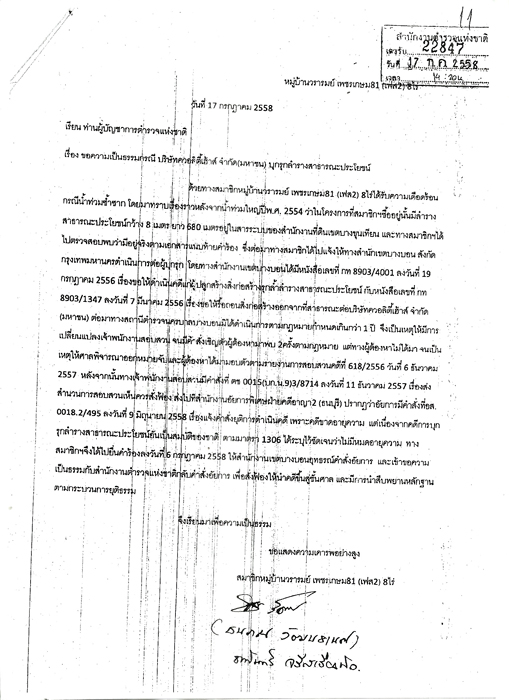 11
สำนักงานตำรวจแห่งชาติ
เลขรับ 22847
วันที่ 17 ก.ค. 2558
เวลา
หมู่บ้านวรารมย์ เพชรเกษม81 (เฟส2) 8ไร่
วันที่ 17 กรกฎาคม 2558
เรียน ท่านผู้บัญชาการตำรวจแห่งชาติ
เรื่อง ขอความเป็นธรรมกรณี บริษัทควอลิตี้เฮ้าส์ จำกัด(มหาชน) บุกรุกลำรางสาธารณะประโยชน์
ด้วยทางสมาชิกหมู่บ้านวรารมย์ เพชรเกษม81 (เฟส2) 8ไร่ได้รับความเดือดร้อน
กรณีน้ำท่วมซ้ำซาก โดยมาทราบเรื่องราวหลังจากน้ำท่วมใหญ่ปีพ.ศ. 2554 ว่าในโครงการที่สมาชิกฯซื้ออยู่นั้นมีลำราง
สาธารณะประโยชน์กว้าง 8 เมตร ยาว 680 เมตรอยู่ในสารระบบของสำนักงานที่ดินเขตบางขุนเทียน และทางสมาชิกฯได้
ไปตรวจสอบพบว่ามีอยู่จริงตามเอกสารแนบท้ายคำร้อง ซึ่งต่อมาทางสมาชิกได้ไปแจ้งให้ทางสำนักเขตบางบอน สังกัด
กรุงเทพมหานครดำเนินการต่อผู้บุกรุก โดยทางสำนักงานเขตบางบอนได้มีหนังสือเลขที่ กท 8903/4001 ลงวันที่ 19
กรกฎาคม 2556 เรื่องขอให้ดำเนินคดีแก่ผู้ปลูกสร้างสิ่งก่อสร้างรุกล้ำลำรางสาธารณะประโยชน์ กับหนังสือเลขที่ กท
8903/1347 ลงวันที่ 7 มีนาคม 2556 เรื่องขอให้รื้อถอนสิ่งก่อสร้างออกจากที่สาธารณะต่อบริษัทควอลิตี้เฮ้าส์ จำกัด
(มหาชน) ต่อมาทางสถานีตำรวจนครบาลบางบอนมิได้ดำเนินการตามกฎหมายกำหนดเกินกว่า 1 ปี จึงเป็นเหตุให้มีการ
เปลี่ยนแปลงเจ้าพนักงานสอบสวน จนมีคำสั่งเชิญตัวผู้ต้องหามาพบ 2ครั้งตามกฎหมาย แต่ทางผู้ต้องหาไม่ได้มา จนเป็น
เหตุให้ศาลพิจารณาออกหมายจับและผู้ต้องหาได้มามอบตัวตามรายงานการสอบสวนคดีที่ 618/2556 วันที่ 6 ธันวาคม
2557 หลังจากนั้นทางเจ้าพนักงานสอบสวนมีคำสั่งที่ ตช 0015(บก.น.9)3/8714 ลงวันที่ 11 ธันวาคม 2557 เรื่องส่ง
สำนวนการสอบสวนเห็นควรสั่งฟ้อง ส่งไปที่สำนักงานอัยการพิเศษฝ่ายคดีอาญา2 (ธนบุรี) ปรากฏว่าอัยการมีคำสั่งที่อส.
0018.2/495 ลงวันที่ 9 มิถุนายน 2558 เรื่องแจ้งคำสั่งยุติการดำเนินคดี เพราะคดีขาดอายุความ แต่เนื่องจากคดีการบุก
รุกลำรางสาธารณะประโยชน์อันเป็นสมบัติของชาติ ตามมาตรา 1306 ได้ระบุไว้ชัดเจนว่าไม่มีหมดอายุความ ทาง
สมาชิกฯจึงได้ไปยื่นคำร้องลงวันที่ 6 กรกฎาคม 2558 ให้สำนักงานเขตบางบอนอุทธรณ์คำสั่งอัยการ และเข้าขอความ
เป็นธรรมกับสำนักงานตำรวจแห่งชาติกลับคำสั่งอัยการ เพื่อสั่งฟ้องให้นำคดีขึ้นสู่ชั้นศาล และมีการนำสืบพยานหลักฐาน
ตามกระบวนการยุติธรรม
จึงเรียนมาเพื่อความเป็นธรรม
ขอแสดงความเคารพอย่างสูง
สมาชิกหมู่บ้านวรารมย์ เพชรเกษม81 (เฟส2) 8ไร่